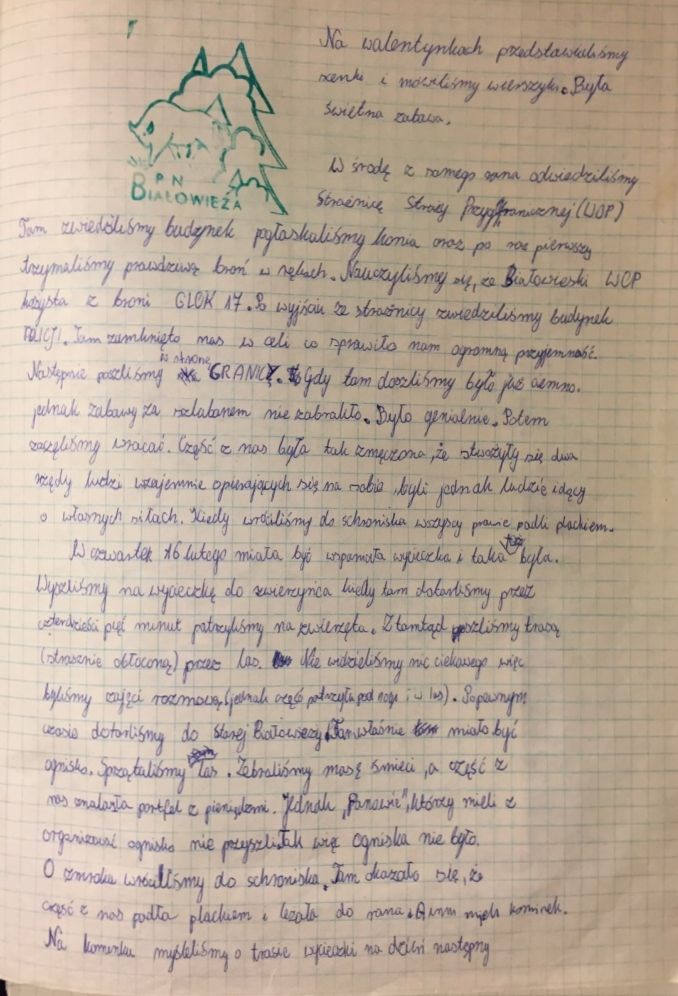 Na walentynkach przedstawialiśmy
scenki i mówiliśmy wierszyki. Była
świetna zabawa.
P N
BIAŁOWIEŻA
W środę z samego rana odwiedziliśmy
Strażnicę Straży Przygranicznej (WOP)
Tam zwiedziliśmy budynek pgłaskaliśmy konia oraz po raz pierwszy
trzymaliśmy prawdziwą broń w rękach. Nauczyliśmy się, że Białowieski WOP
kożysta z broni GLOK 17. Po wyjściu ze strażnicy zwiedziliśmy budynek
POLICJI. Tam zamknięto nas w celi co sprawiło nam ogromną przyjemność.
Następnie poszliśmy w stronę GRANICY. Gdy tam doszliśmy było już ciemno.
jednak zabawy za szlabanem nie zabrakło. Było genialnie. Potem
zaczęliśmy wracać. Część z nas była tak zmęczona, że stwożyły się dwa
rzędy ludzi wzajemnie opierających się na sobie byli jednak ludzię idący
o własnych siłach. Kiedy wróciliśmy do schroniska wszyscy prawie padli plackiem.
W czwartek 16 lutego miała być wspaniała wycieczka i taka też była.
Wyszliśmy na wycieczkę do zwierzyńca kiedy tam dotarliśmy przez
czterdzieści pięć minut patrzyliśmy na zwierzęta. Ztamtąd poszliśmy trasą
(strasznie obłoconą) przez las. Nie widzieliśmy nic ciekawego więc
byliśmy zajęci rozmową (jednak część patrzyła pod nogi i w las). Popewnym
czasie dotarliśmy do Starej Białowieży. Tam właśnie miało być
ognisko. Sprzątaliśmy las. Zebraliśmy masę śmieci, a część z
nas znalazła portfel z pieniędzmi. Jednak „Panowie", którzy mieli z
organizować ognisko nie przyszli. Tak więc ogniska nie było.
O zmroku wróciliśmy do schroniska. Tam okazało się, że
część z nas padła plackiem i leżała do rana. A inni mieli kominek.
Na kominku myśleliśmy o trasie wycieczki na dzień następny